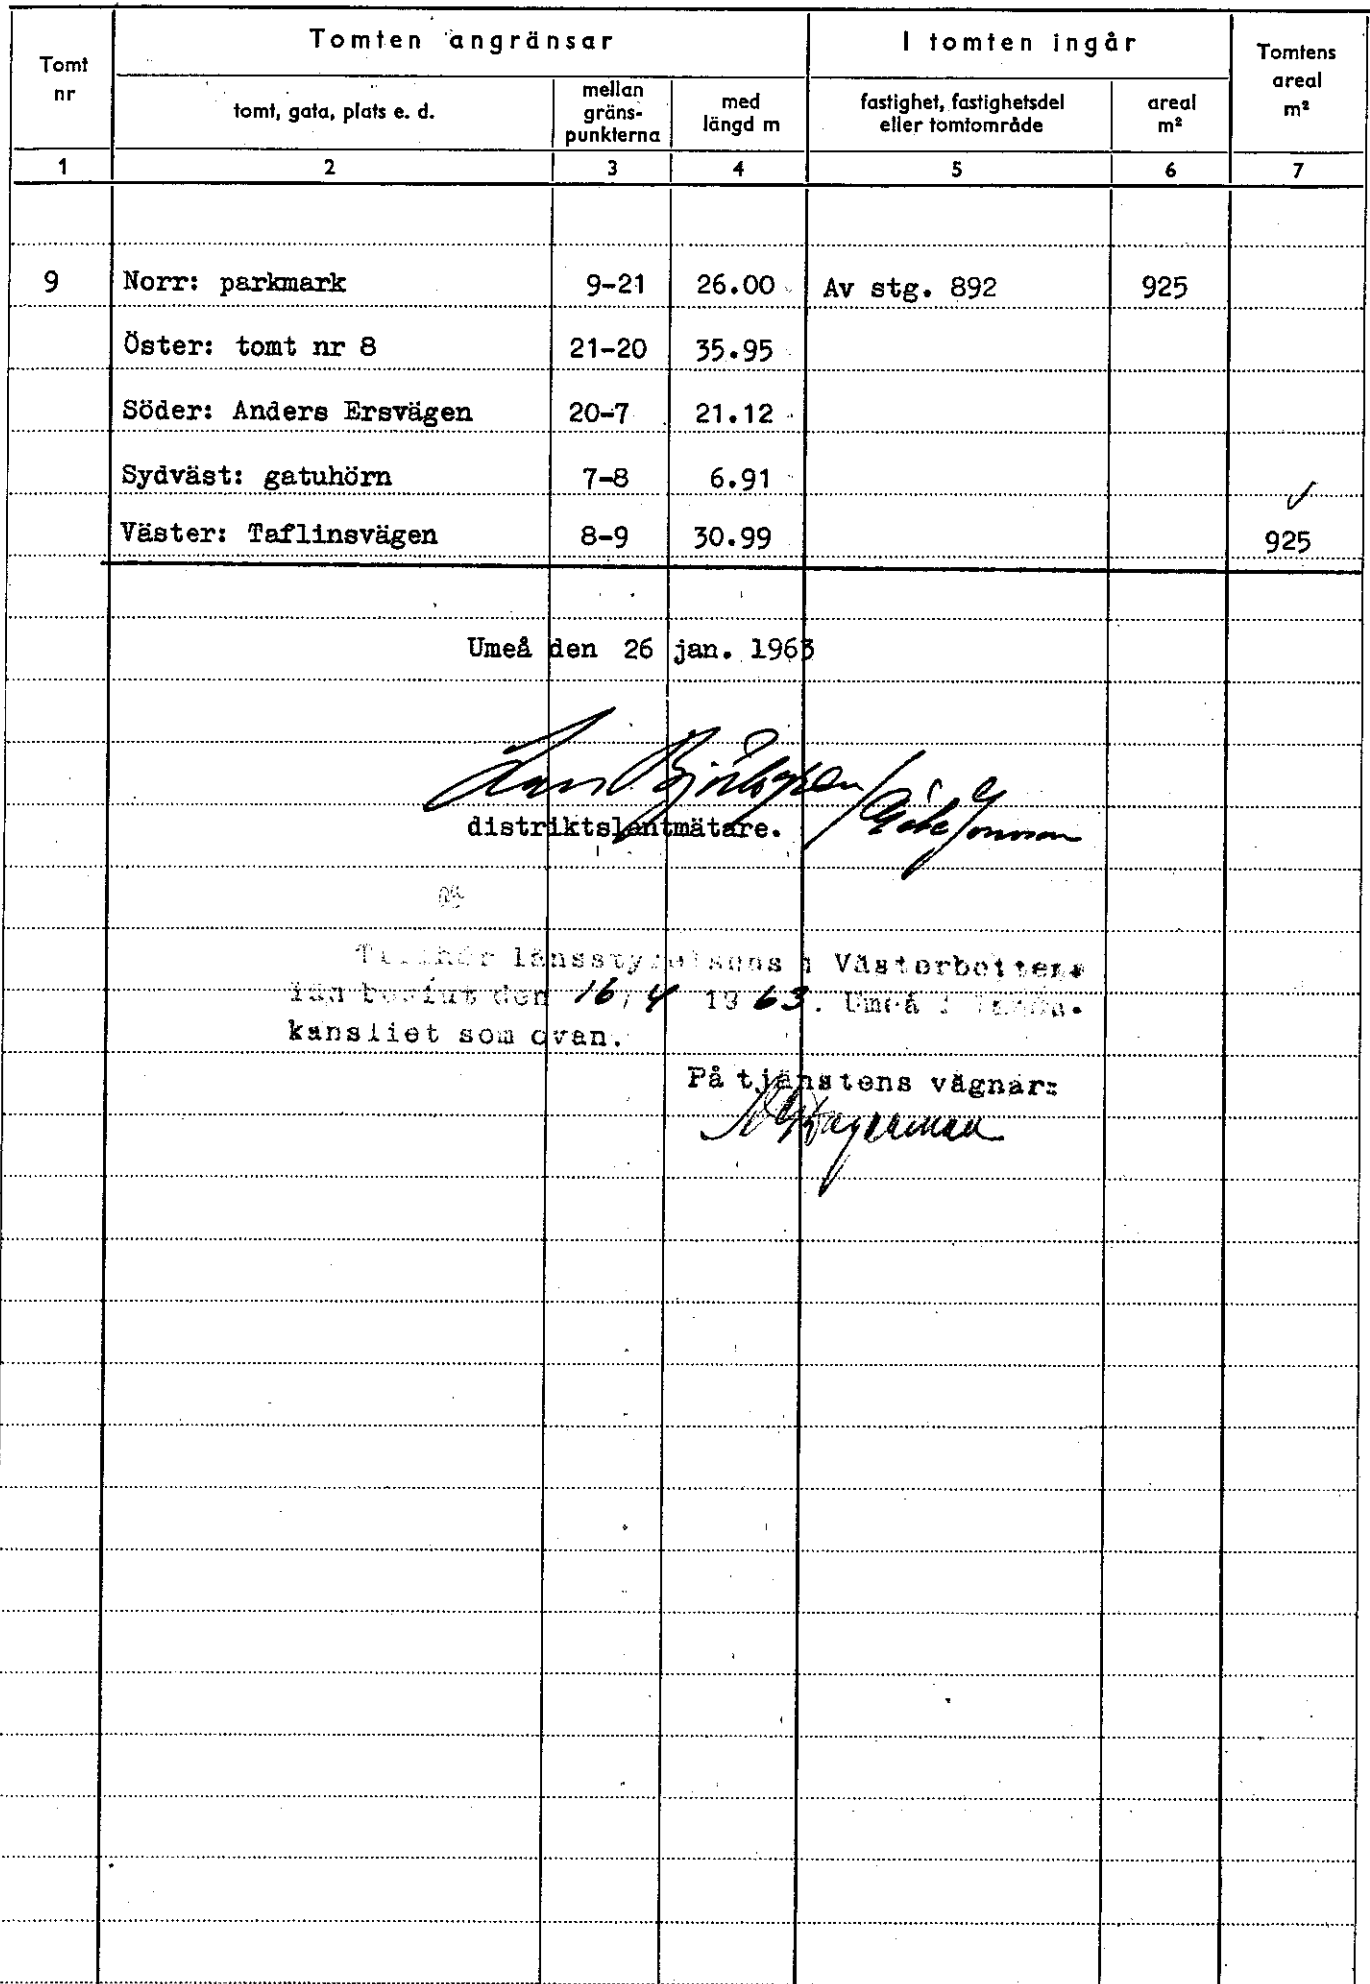 Tomt nr
Tomten angränsar
I tomten ingår
Tomtens areal m²
tomt, gata, plats e. d.
mellan gräns-punkterna
med längd m
fastighet, fastighetsdel eller tomtområde
areal m²
1 2 3 4 5 6 7
9 Norr: parkmark 9-21 26.00 Av stg. 892 925
Öster: tomt nr 8 21-20 35.95
Söder: Anders Ersvägen 20-7 21.12
Sydväst: gatuhörn 7-8 6.91
Väster: Taflinsvägen 8-9 30.99 925
Umeå den 26 jan. 1963
distriktslantmätare.
Tillhör länsstyrelsens i Västerbottens
län beslut den 16/4 1963. Umeå i
kansliet som ovan.
På tjänstens vägnar: